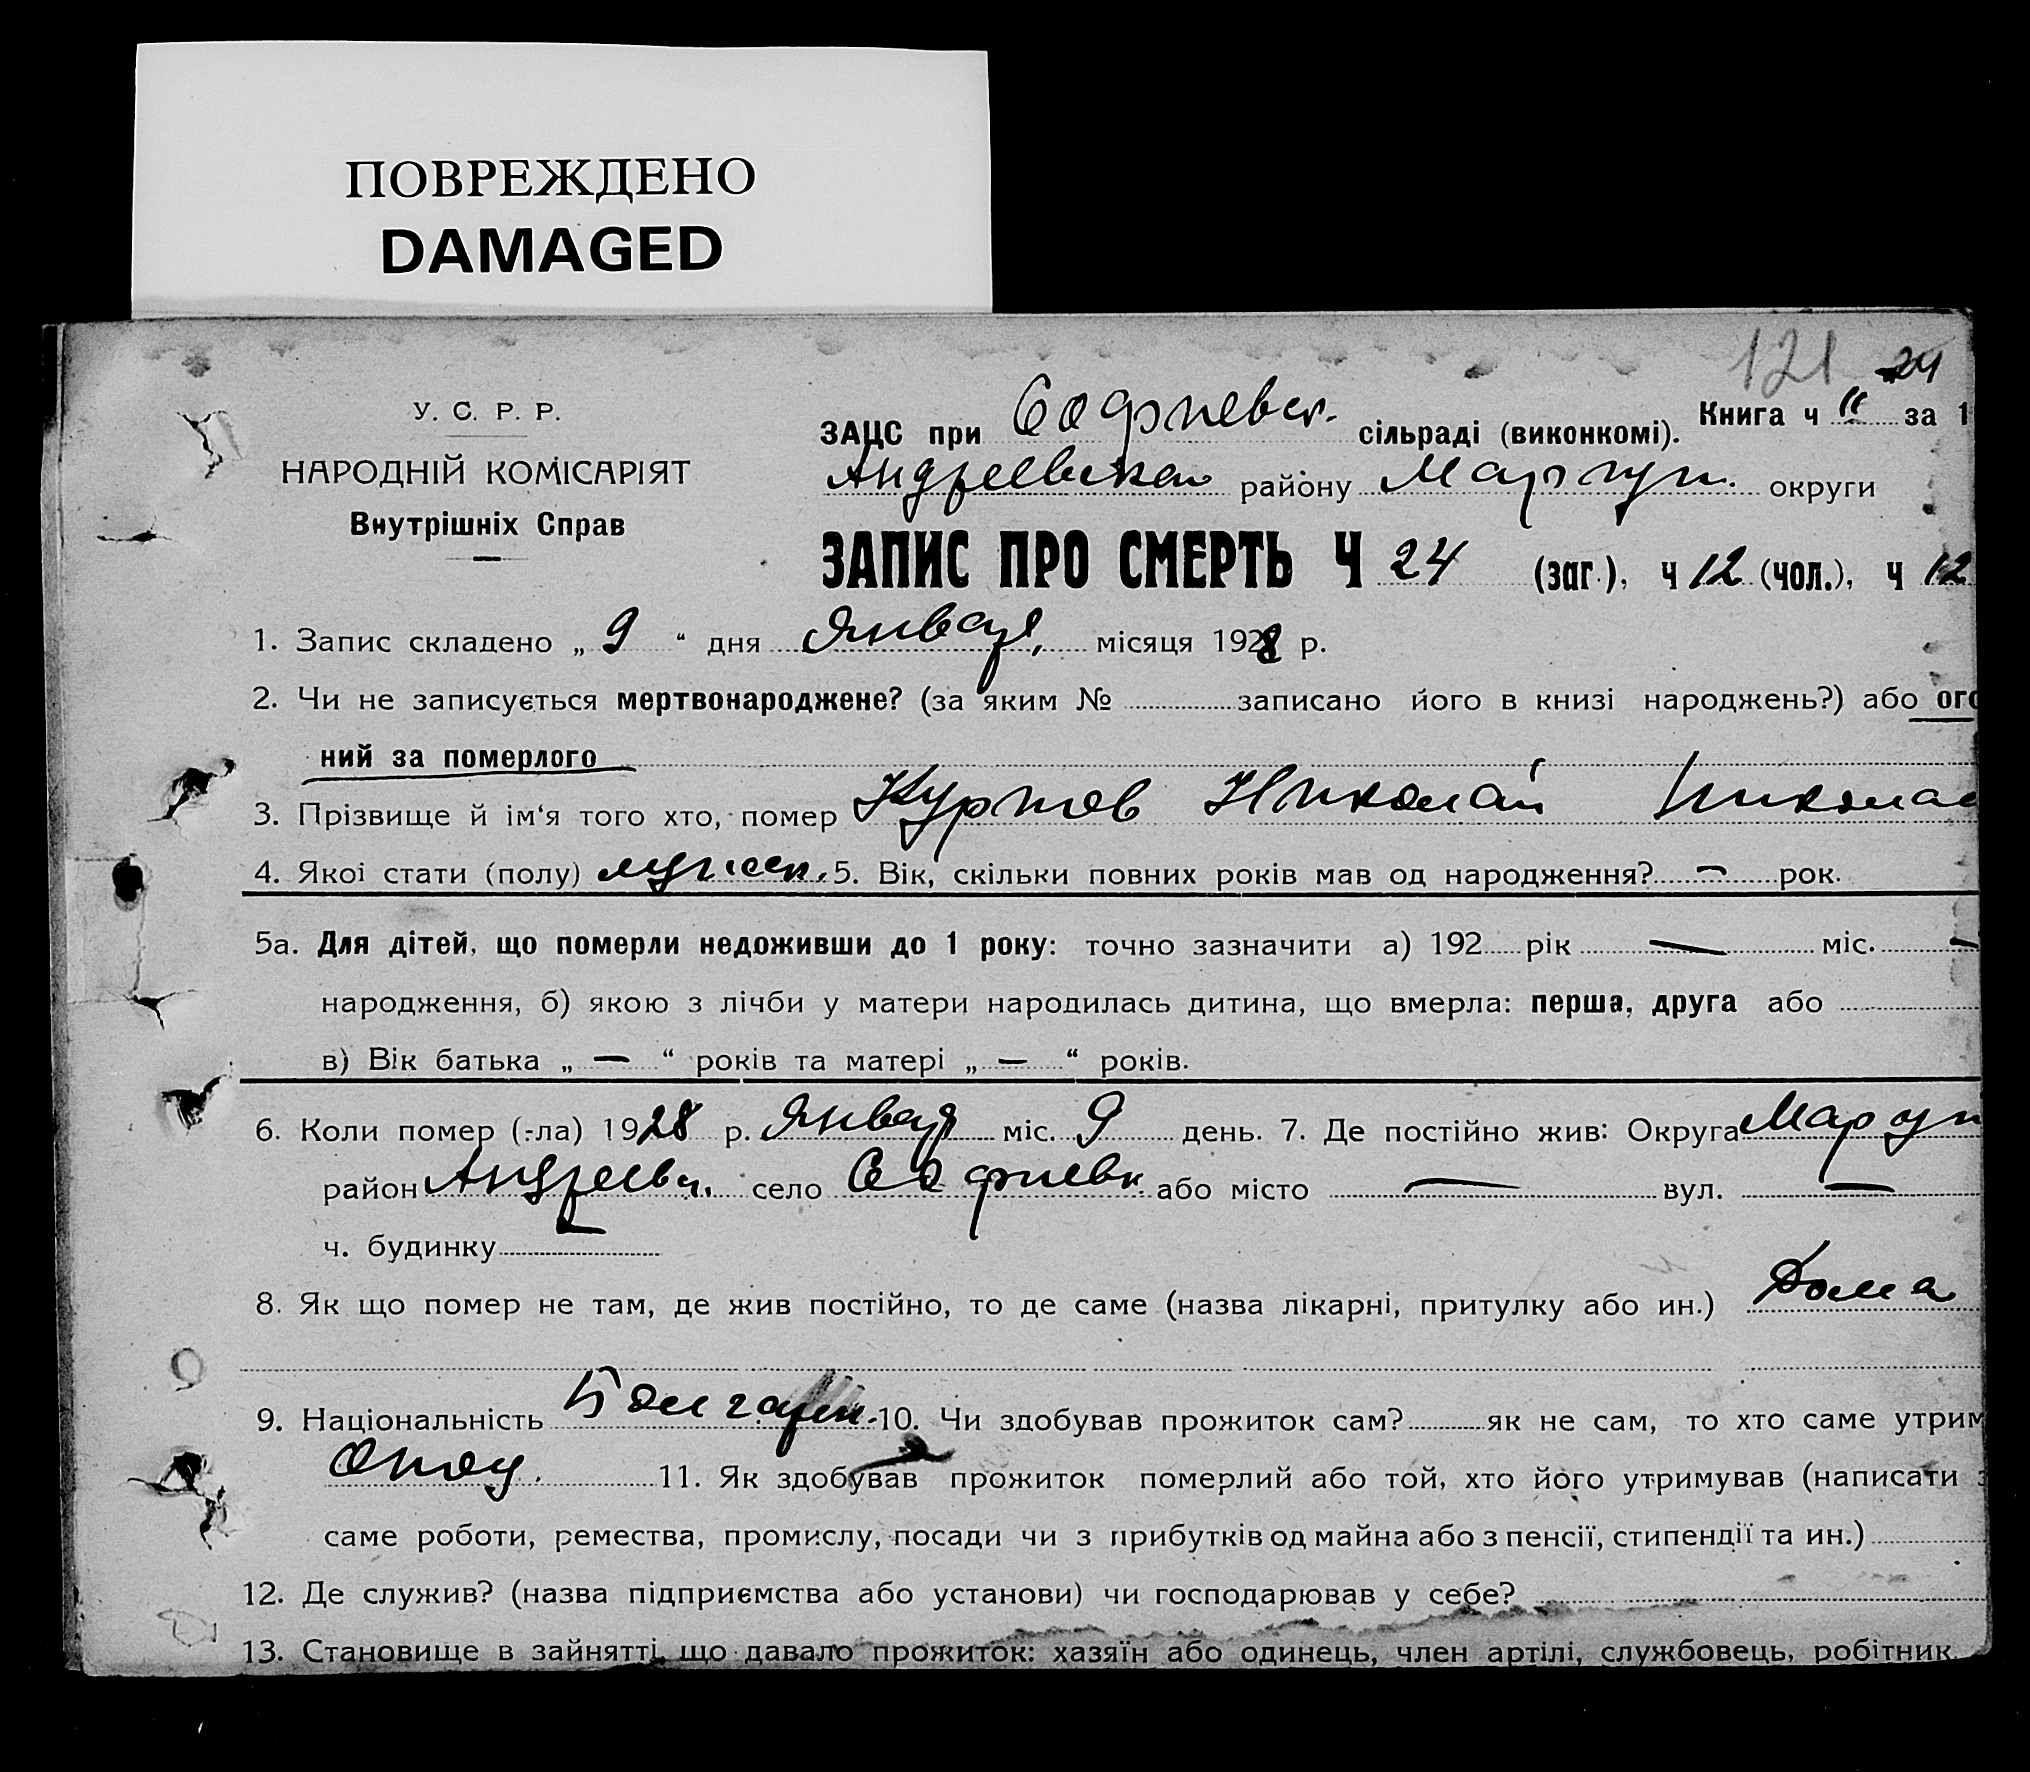 ПОВРЕЖДЕНО
DAMAGED
121 24
У. С. Р. Р.
НАРОДНІЙ КОМІСАРІЯТ
Внутрішніх Справ
Книга ч II за 1
ЗАЦС при Софиевск. сільраді (виконкомі).
району Мариуп. округи
ЗАПИС ПРО СМЕРТЬ Ч 24 (заг.), ч 12 (чол.), ч 12
1. Запис складено „ 9 “ дня Января місяця 1928 р.
2. Чи не записується мертвонароджене? (за яким № записано його в книзі народжень?) або ого
ний за померлого
3. Прізвище й ім‘я того хто, помер Куртов Николай Никола
4. Якої стати (полу) мужск. 5. Вік, скільки повних років мав од народження? — рок.
5а. Для дітей, що померли недоживши до 1 року: точно зазначити а) 192 рік — міс. —
народження, б) якою з лічби у матери народилась дитина, що вмерла: перша, друга або
в) Вік батька „ — “ років та матері „ — “ років.
6. Коли помер (-ла) 1928 р. Января міс. 9 день. 7. Де постійно жив: Округа Мариуп
район Андреевк. село Софиевк. або місто — вул. —
ч. будинку —
8. Як що помер не там, де жив постійно, то де саме (назва лікарні, притулку або ин.) Дома
9. Національність 10. Чи здобував прожиток сам? як не сам, то хто саме утрим
Отец. 11. Як здобував прожиток померлий або той, хто його утримував (написати з
саме роботи, ремества, промислу, посади чи з прибутків од майна або з пенсії, стипендії та ин.)
12. Де служив? (назва підприємства або установи) чи господарював у себе?
13. Становище в зайнятті, що давало прожиток: хазяїн або одинець, член артілі, службовець, робітник,